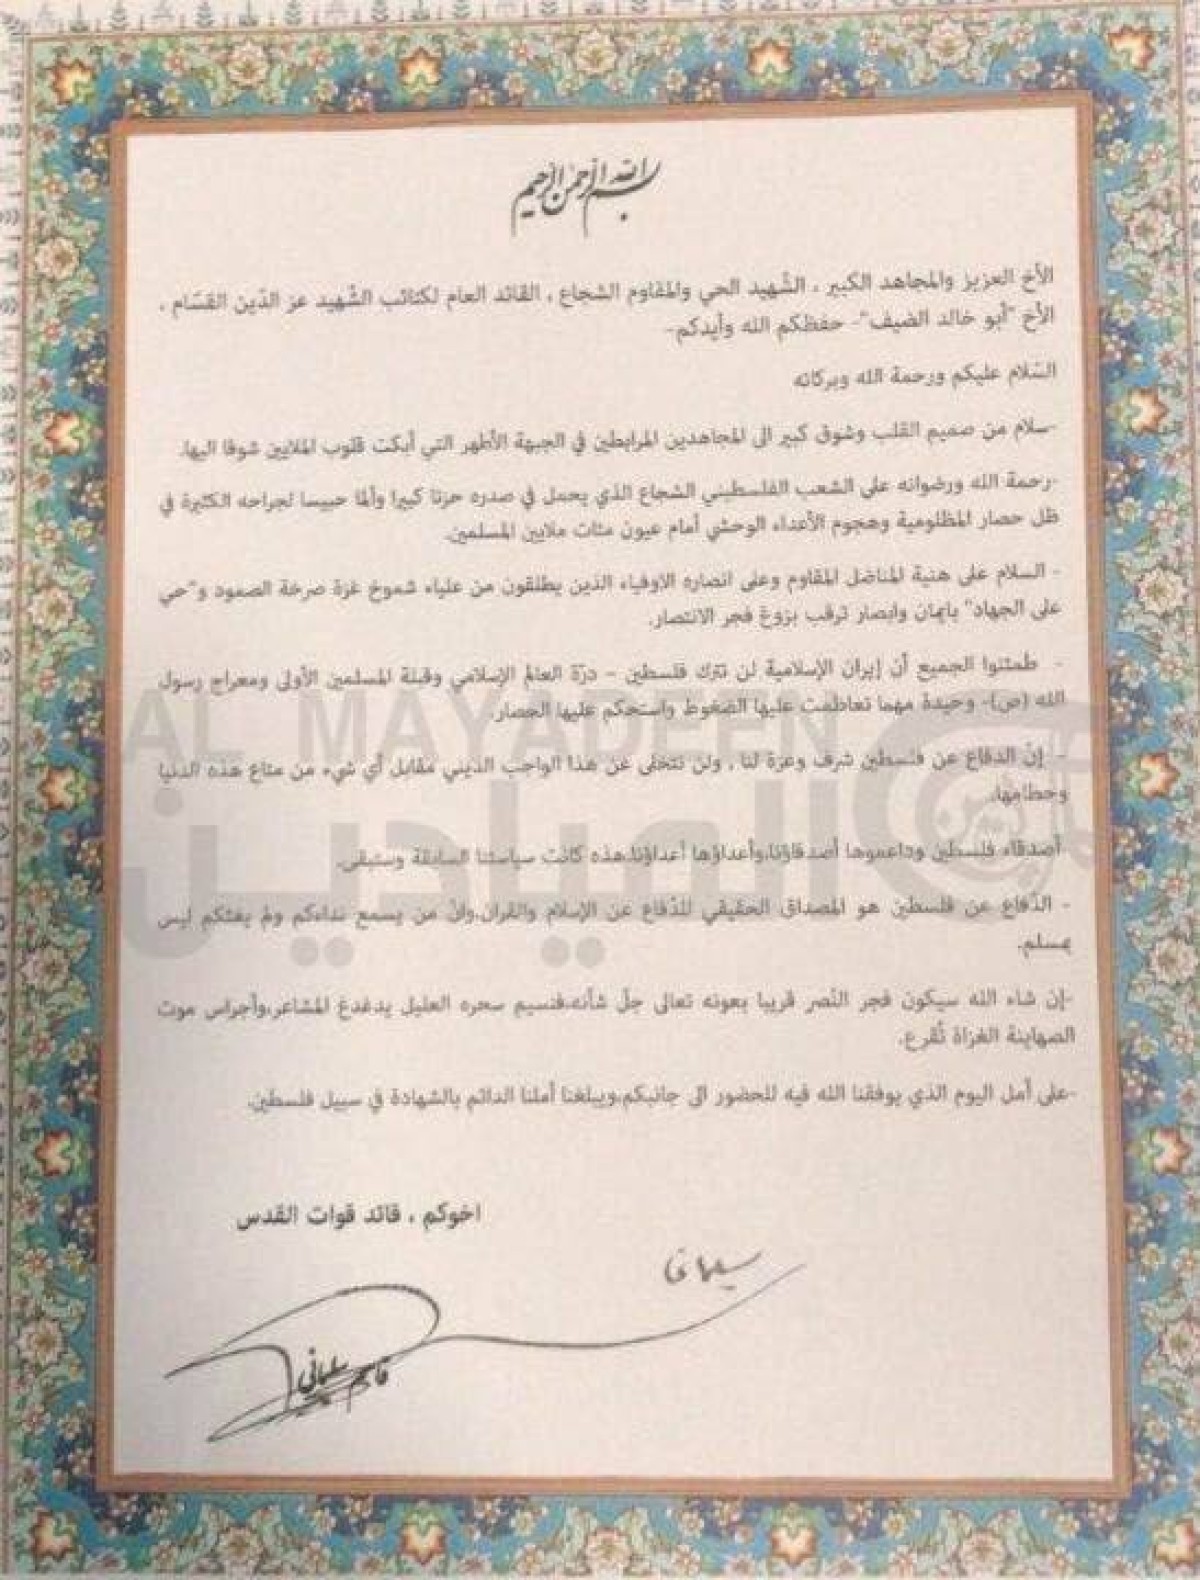 بسم الله الرحمن الرحيم
الأخ العزيز والمجاهد الكبير ، الشّهيد الحي والمقاوم الشجاع ، القائد العام لكتائب الشّهيد عز الدّين القسّام ،
الأخ "أبو خالد الضيف"- حفظكم الله وأيدكم-
السّلام عليكم ورحمة الله وبركاته
-سلام من صميم القلب وشوق كبير الى المجاهدين المرابطين في الجبهة الأطهر التي أبكت قلوب الملايين شوقا اليها.
-رحمة الله ورضوانه على الشعب الفلسطيني الشجاع الذي يحمل في صدره حزنا كبيرا وألما حبيسا لجراحه الكثيرة في
ظل حصار المظلومية وهجوم الأعداء الوحشي أمام عيون مئات ملايين المسلمين.
- السلام على هنية المناضل المقاوم وعلى انصاره الاوفياء الذين يطلقون من علياء شموخ غزة صرخة الصمود و"حي
على الجهاد" بايمان وابصار ترقب بزوغ فجر الانتصار.
- طمئنوا الجميع أن إيران الإسلامية لن تترك فلسطين – درّة العالم الإسلامي وقبلة المسلمين الأولى ومعراج رسول
الله (ص)- وحيدة مهما تعاظمت عليها الضغوط واستحكم عليها الحصار.
- إنّ الدفاع عن فلسطين شرف وعزة لنا , ولن نتخلى عن هذا الواجب الديني مقابل أي شيء من متاع هذه الدنيا
وحطامها.
.أصدقاء فلسطين وداعموها أصدقاؤنا،وأعداؤها أعداؤنا،هذه كانت سياستنا السابقة وستبقى.
- الدّفاع عن فلسطين هو المصداق الحقيقي للدّفاع عن الإسلام والقران,وانّ من يسمع نداءكم ولم يغثكم ليس
بمسلم.
-إن شاء الله سيكون فجر النّصر قريبا بعونه تعالى جلّ شأنه،فنسيم سحره العليل يدغدغ المشاعر،وأجراس موت
الصهاينة الغزاة تُقرع.
-على أمل اليوم الذي يوفقنا الله فيه للحضور الى جانبكم،ويبلغنا أملنا الدائم بالشهادة في سبيل فلسطين.
اخوكم ، قائد قوات القدس
قاسم سليماني
AL MAYADEEN
الميادين